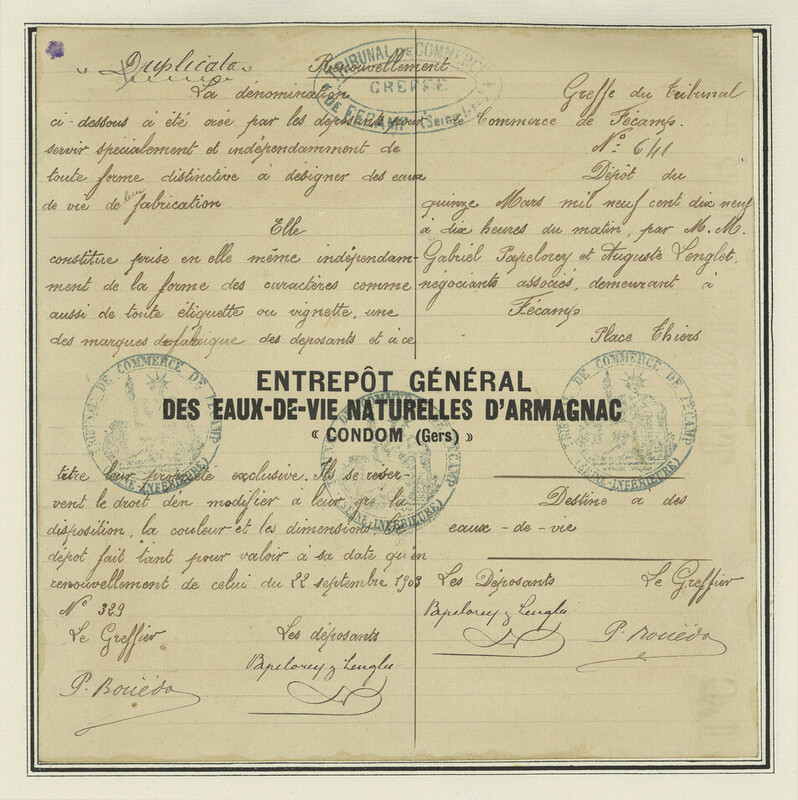 " Duplicata " Renouvellement
TRIBUNAL DE COMMERCE
GREFFE
DE FÉCAMP (Seine Infre)
La dénomination
ci-dessous à été créé par les déposants pour
servir spécialement et indépendamment de
toute forme distinctive à désigner des eaux
de vie de leur fabrication
Elle
constitue prise en elle même indépendam-
ment de la forme des caractères comme
aussi de toute étiquette ou vignette, une
des marques de fabrique des déposants et à ce
Greffe du Tribunal
de Commerce de Fécamp.
No. 641
Dépôt du
quinze Mars mil neuf cent dix neuf
à dix heures du matin, par M. M.
Gabriel Papelorey et Auguste Lenglet,
négociants associés, demeurant à
Fécamp
Place Thiers
ENTREPÔT GÉNÉRAL
DES EAUX-DE-VIE NATURELLES D'ARMAGNAC
« CONDOM (Gers) »
TRIBUNAL DE COMMERCE DE FÉCAMP
(SEINE INFÉRIEURE)
TRIBUNAL DE COMMERCE DE FÉCAMP
(SEINE INFÉRIEURE)
TRIBUNAL DE COMMERCE DE FÉCAMP
(SEINE INFÉRIEURE)
titre leur propriété exclusive. Ils se réser-
vent le droit d'en modifier à leur gré la
disposition, la couleur et les dimensions
dépôt fait tant pour valoir à sa date qu'en
renouvellement de celui du 22 septembre 1903
No 329
Le Greffier Les déposants
Papelorey & Lenglet
Destiné à des
eaux-de-vie
Les Déposants Le Greffier
Papelorey & Lenglet